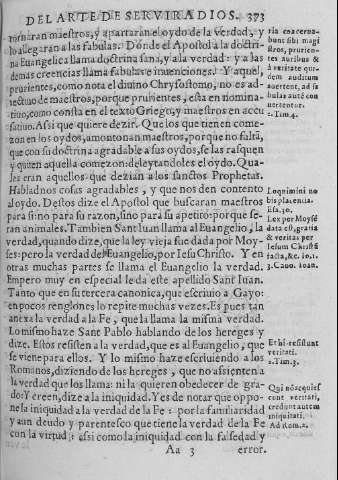 DEL ARTE DE SERVIR A DIOS. 373
tornaran maestros, y apartaran el oydo de la verdad, y
lo allegaran a las fabulas. Donde el Apostol a la doctri-
na Euangelica llama doctrina sana, y a la verdad: y a las
demas creencias llama fabulas e inuenciones. Y aquel,
prurientes, como nota el diuino Chrysostomo, no es ad-
iectiuo de maestros, porque prurientes, esta en nomina-
tiuo, como consta en el texto Griego, y maestros en accu
satiuo. Assi que quiere dezir. Que los que tienen come-
zon en los oydos, amontonan maestros, porque no faltã,
que con su doctrina agradable a sus oydos, se las rasquen
y quiten aquella comezon: deleytandoles el oydo. Qua-
les eran aquellos que dezian a los sanctos Prophetas.
Hablad nos cosas agradables, y que nos den contento
al oydo. Destos dize el Apostol que buscaran maestros
para si: no para su razon, sino para su apetito: porque se-
ran animales. Tambien Sant Iuan llama al Euangelio, la
verdad, quando dize, que la ley vieja fue dada por Moy-
ses: pero la verdad del Euangelio, por Iesu Christo. Y en
otras muchas partes se llama el Euangelio la verdad.
Empero muy en especial le da este apellido Sant Iuan.
Tanto que en su tercera canonica, que escriuio a Gayo:
en pocos renglones lo repite muchas vezes. Es pues tan
anexa la verdad a la Fe, que la llama la misma verdad.
Lo mismo haze Sant Pablo hablando de los hereges y
dize. Estos resisten a la verdad, que es al Euangelio, que
se viene para ellos. Y lo mismo haze escriuiendo a los
Romanos, diziendo de los hereges, que no assienten a
la verdad que los llama: ni la quieren obedecer de gra-
do: Y creen, dize a la iniquidad. Y es de notar que oppo-
ne la iniquidad a la verdad de la Fe: por la familiaridad
y aun deudo y parentesco que tiene la verdad de la Fe
con la virtud: assi como la iniquidad con la falsedad y
Aa 3 error.
ria coacerna-
bunt sibi magi
stros, prurien-
tes auribus &
à veritate qui-
dem auditum
auertent, ad fa
bulas autẽ con
uertentur.
2. Tim. 4.
Loquimini no
bis placentia.
Esa. 30.
Lex per Moysẽ
data est, gratia
& veritas per
Iesum Christũ
facta, &c. Io. 1.
3. Cano. Ioan.
Et hi resistunt
veritati.
2. Tim. 3.
Qui nõ acquies
cunt veritati,
credunt autem
iniquitati.
Ad Rom. 2.